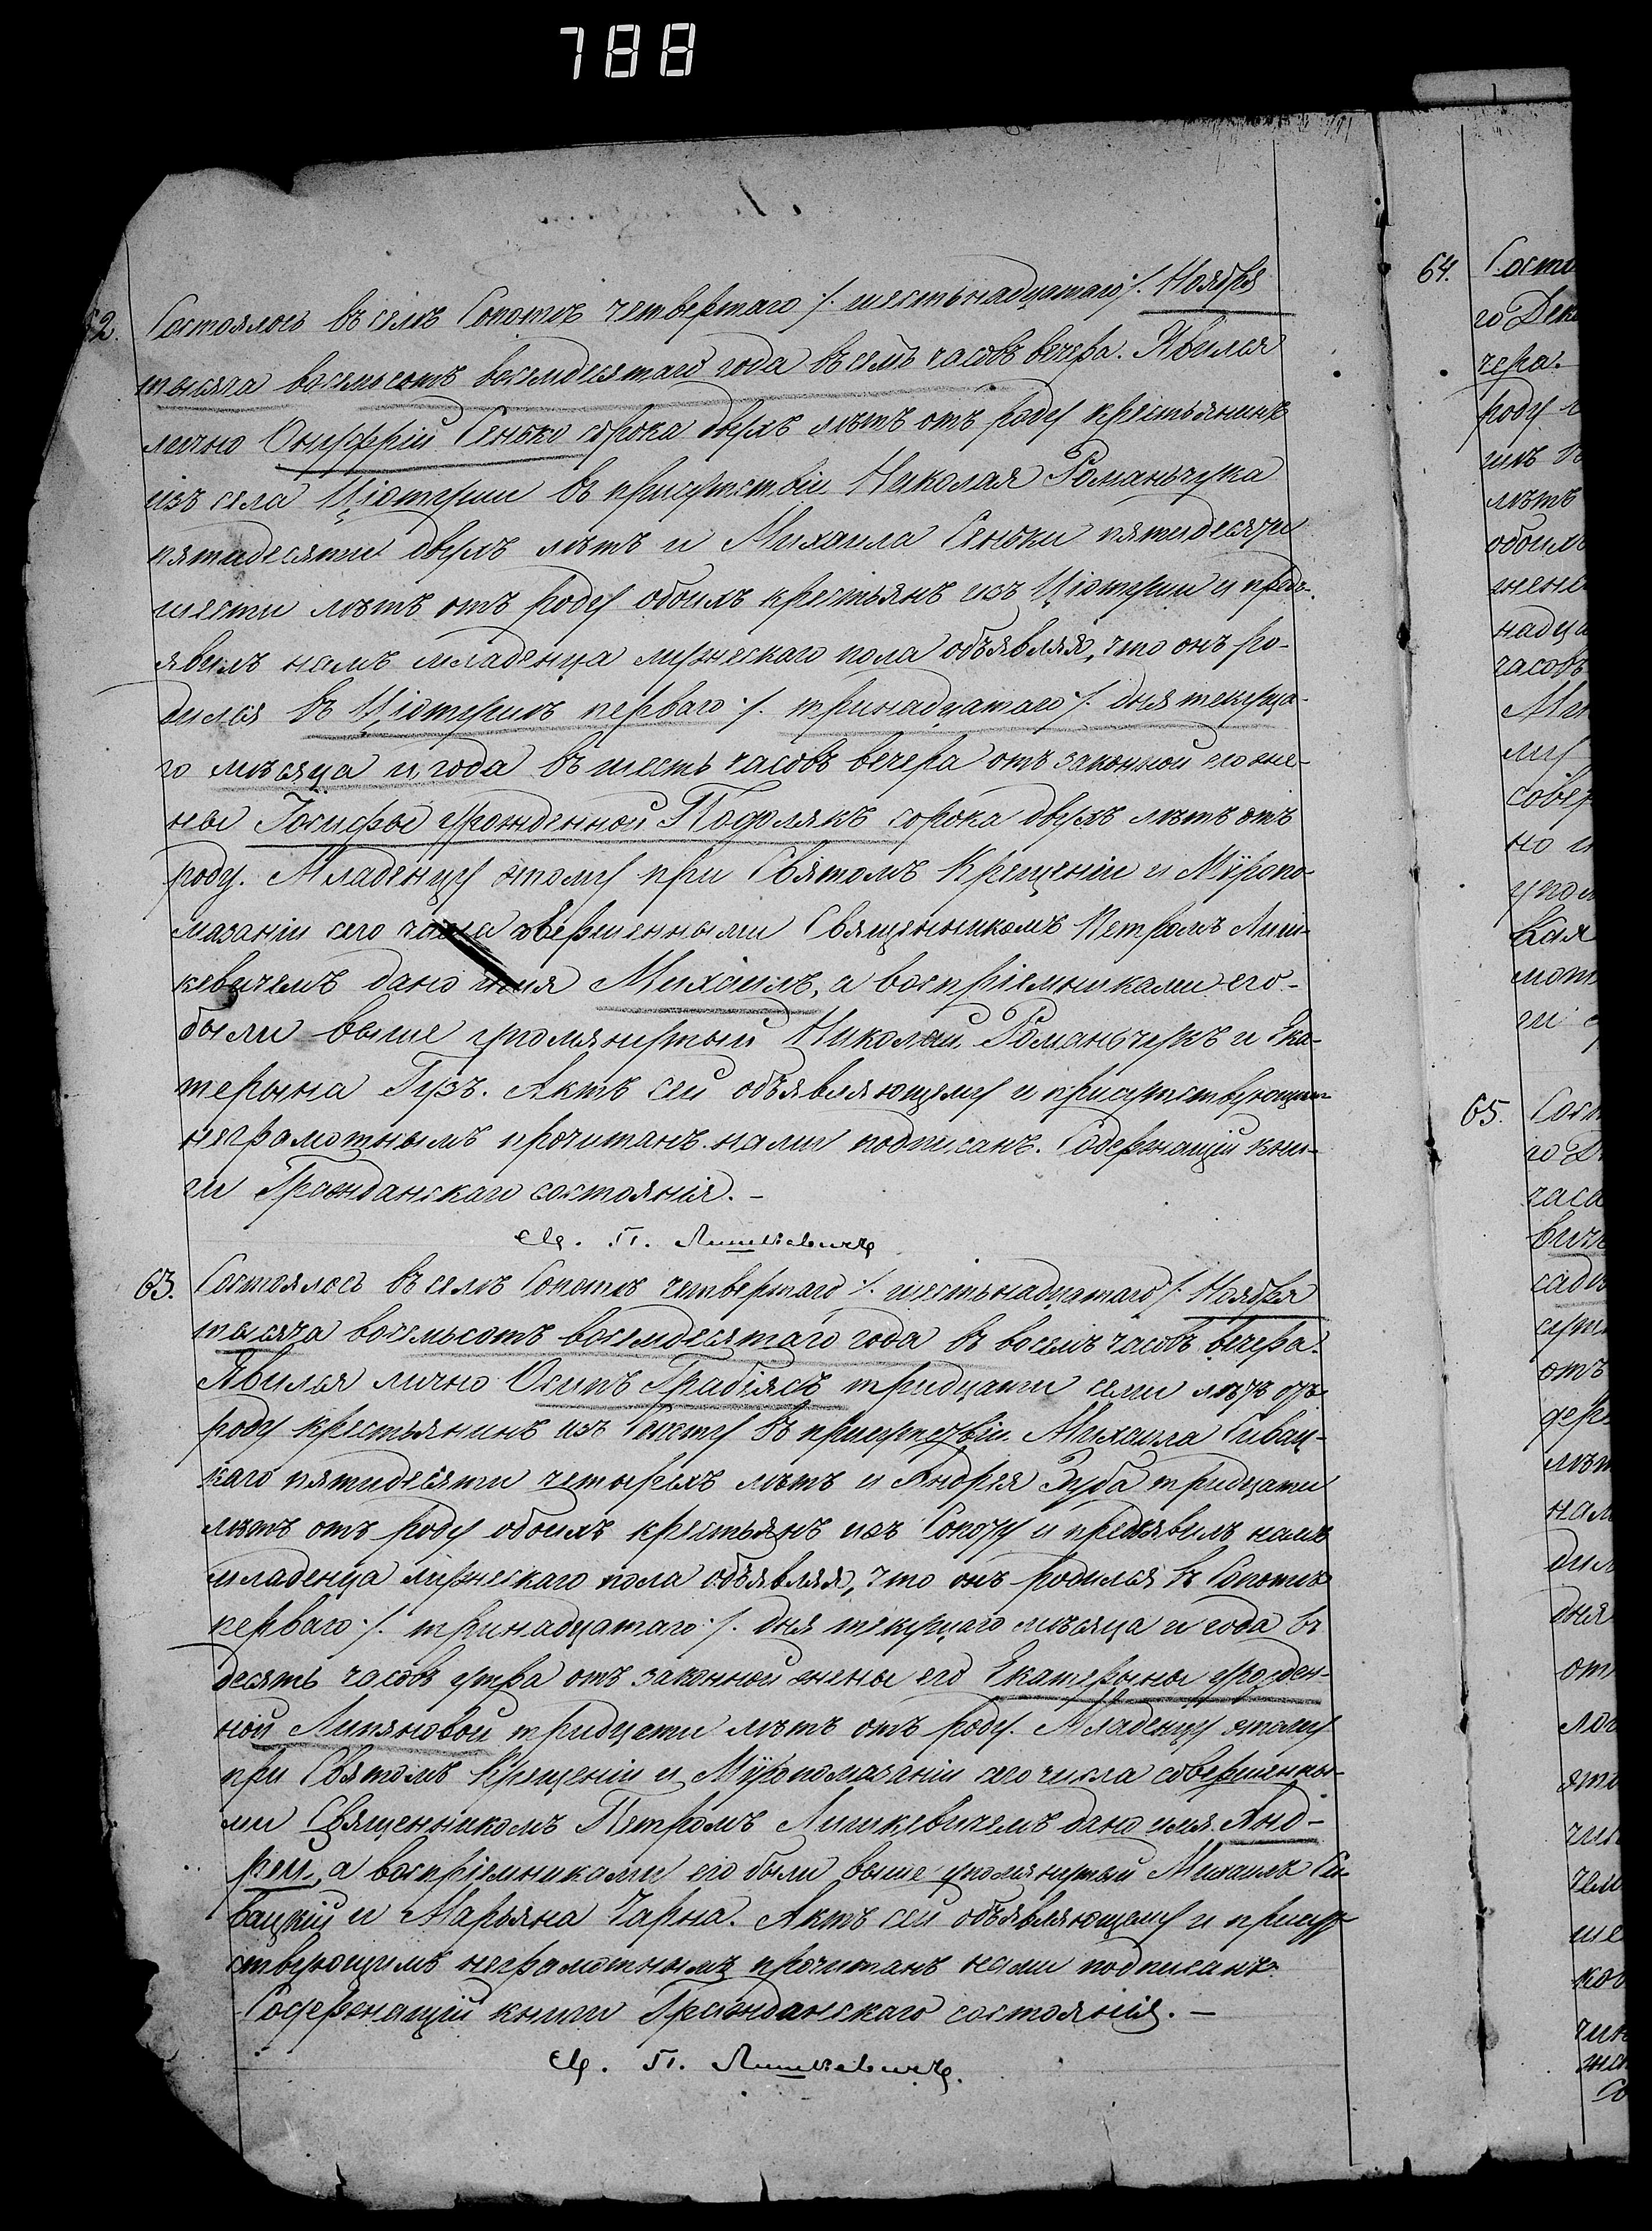 788
62. Состоялось въ селѣ Сопотѣ четвертаго /. шестьнадцатаго /. Ноября
тысяча восемьсотъ восемдесятаго года въ семь часовъ вечера. Явился
лично Онуфрій Сенько сорока двухъ лѣтъ отъ роду крестьянинъ
изъ села Ціотуши въ присутствіи Николая Романьчука
пятидесяти двухъ лѣтъ и Михаила Сеньки пятидесяти
шести лѣтъ отъ роду обоихъ крестьянъ изъ Ціотуши и предъ-
явилъ намъ младенца мужескаго пола объявляя, что онъ ро-
дился въ Ціотушѣ перваго /. тринадцатаго /. дня текуща-
го мѣсяца и года въ шесть часовъ вечера отъ законной его же-
ны Іосифы урожденной Подолякъ сорока двухъ лѣтъ отъ
роду. Младенцу этому при Святомъ Крещеніи и Мѵропо-
мазаніи сего числа совершенными Священникомъ Петромъ Лиш-
кевичемъ дано имя Михаилъ, а воспріемниками его
были выше упомянутый Николай Романьчукъ и Ека-
терына Гузъ. Актъ сей объявляющему и присутствующимъ
неграмотнымъ прочитанъ нами подписанъ. Содержащій кни-
ги Гражданскаго состоянія. –
Св. П. Лишкевичъ
63. Состоялось въ селѣ Сопотѣ четвертаго /. шестьнадцатаго /. Ноября
тысяча восемьсотъ восемдесятаго года въ восемь часовъ вечера.
Явился лично Осипъ Грабіясъ тридцати семи лѣтъ отъ
роду крестьянинъ изъ Сопоту въ присутствіи Михаила Сивац-
каго пятидесяти четырехъ лѣтъ и Андрея Зуба тридцати
лѣтъ отъ роду обоихъ крестьянъ изъ Сопоту и предъявилъ намъ
младенца мужескаго пола объявляя, что онъ родился въ Сопотѣ
перваго /. тринадцатаго /. дня текущаго мѣсяца и года въ
десять часовъ утра отъ законной жены его Екатерыны урожден-
ной Лупяновой тридцати лѣтъ отъ роду. Младенцу этому
при Святомъ Крещеніи и Мѵропомазаніи сего числа совершенны-
ми Священникомъ Петромъ Лишкевичемъ дано имя Анд-
рей, а воспріемниками его были выше упомянутый Михаилъ Си-
вацкій и Марьяна Чарна. Актъ сей объявляющему и присут-
ствующимъ неграмотнымъ прочитанъ нами подписанъ.
Содержащій книги Гражданскаго состоянія. –
Св. П. Лишкевичъ.
64. Состо
го Дека
чера.
роду
лѣтъ
обоихъ
жене
надца
часовъ
Ма
му
совер
но и
упом
кая
мот
ги
65. Сост
го Д
часа
вич
сади
отъ
лѣт
нам
дил
дня
от
чем
ше
ков